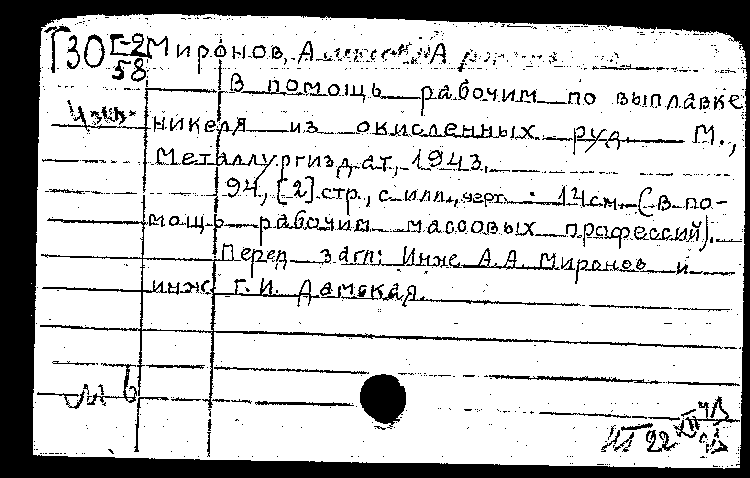 Г30 Г-2 Миронов, Алексей А
58
В помощь рабочим по выплавке
4 экз. никеля из окисленных руд. М.,
Металлургиздат, 1943.
94, [2] стр., с илл., черт. 14 см. (В по-
мощь рабочим массовых профессий).
Перед загл: Инж. А.А. Миронов и
инж. Г.И. Дамская.